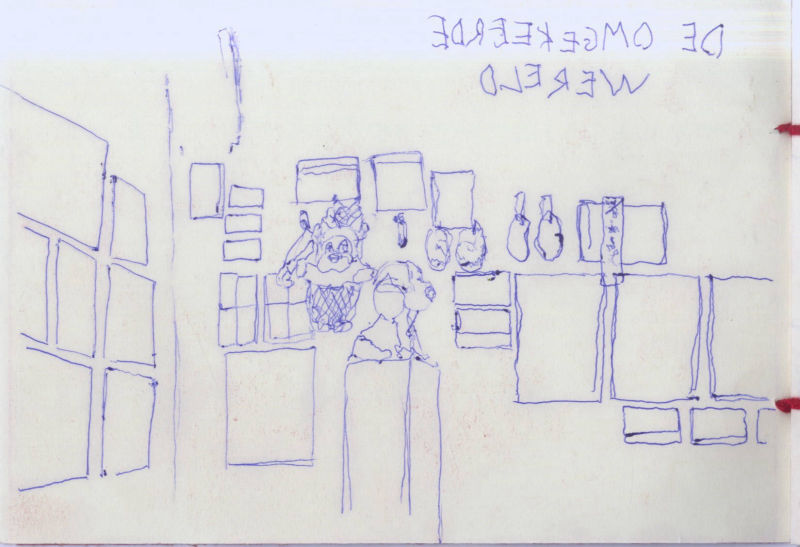 DE OMGEKEERDE
WERELD